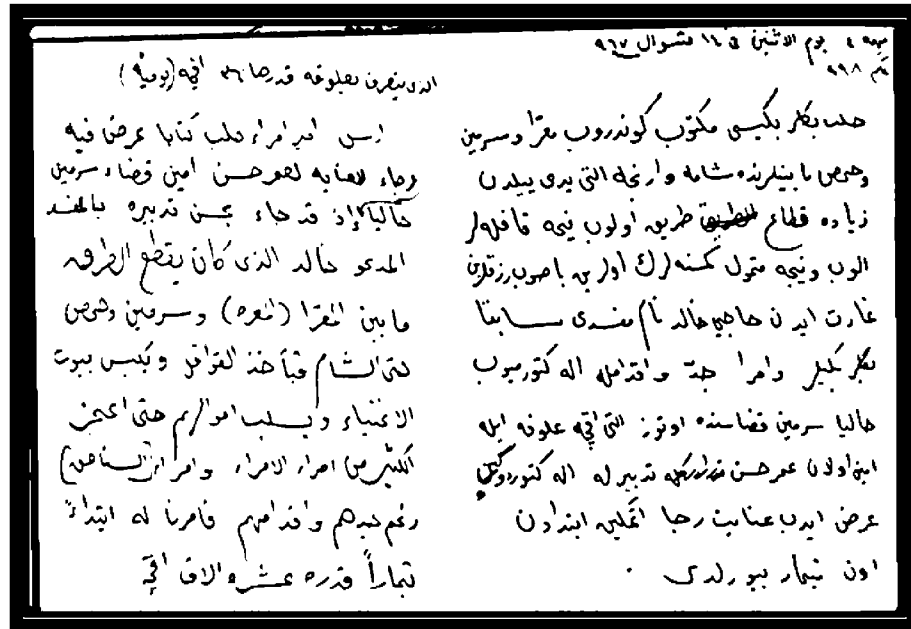 مهمه ٤ يوم الاثنين في ١٤ شوال ٩٦٧
حكم ٩٩٨
حلب بكلربكيسى مكتوب كوندروب معرا و سرمين
وحمص مابينلرنده شامه وارنجه التى يدى ييلدن
زياده قطاع طريق اولوب نيجه قافله لر
الوب ونيجه متمول كمسنه لرك اولرين باصوب رزقلرين
غارت ايدن حاجى خالد نام مفسدى سابقا
بكلربكيلر وامرا جد و اقدامله اله كتورميوب
حاليا سرمين قضاسنده اوتوز التى اقچه علوفه ايله
امين اولان عمر حسن تدبيرله اله كتوردوكن
عرض ايدب عنايت رجا اتمكين ابتدادن
اون بيك تيمار بيورلدى .
الذى يتصرف بعلوفه قدرها ٣٦ اقچه (يوميا)
ارسل امير امراء حلب كتابا عرض فيه
ورجاء للعنايه لعمر حسن امين قضاء سرمين
حاليا إذ قد جاء بحسن تدبيره بالمفسد
المدعو خالد الذى كان يقطع الطرق
ما بين المعرا (المعره) وسرمين وحمص
حتى الشام فيأخذ القوافل ويكبس بيوت
الاغنياء ويسلب اموالهم حتى اعجز
الكثير من امراء الامراء وامراء (السناجق)
رغم جدهم واقدامهم فامرنا له ابتداءً
تيماراً قدره عشره الاف اقچه